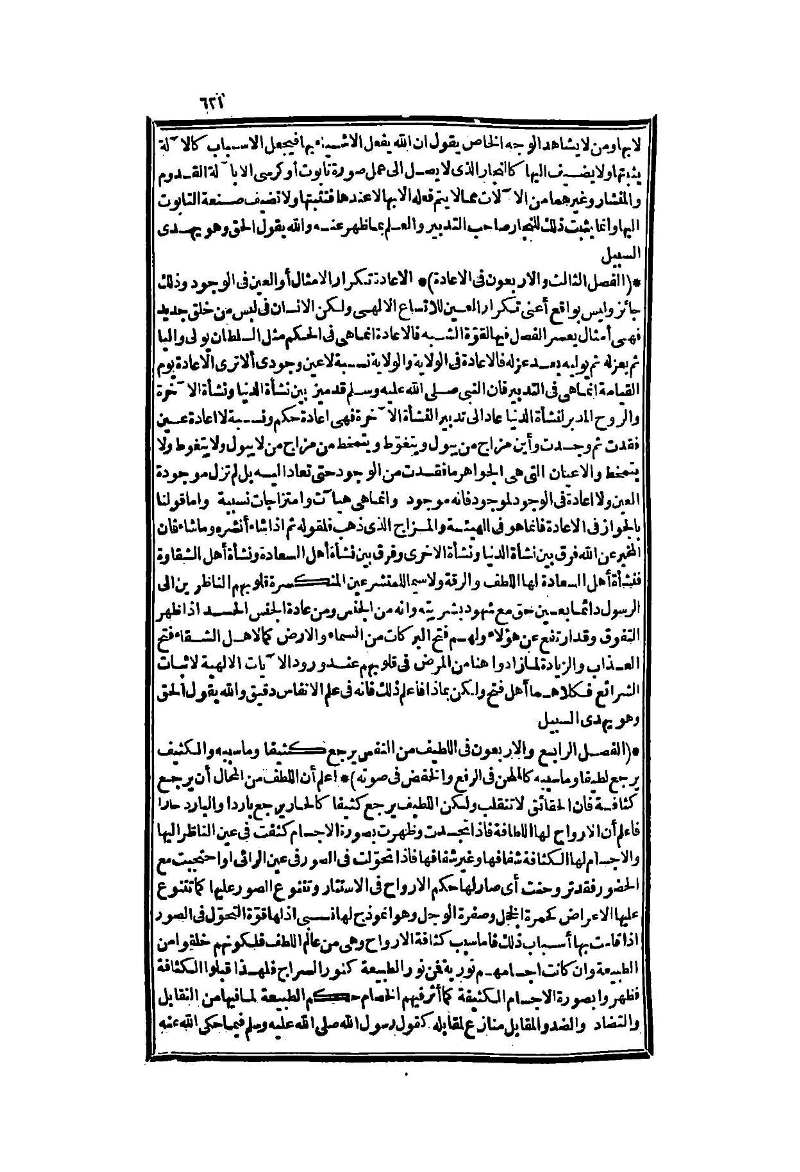 ٦٢١
لا بها ومن لا يشاهد الوجه الخاص يقول ان الله يفعل الاشياء بها فيجعل الاسباب كالآلة
يثبتها ولا يضيف اليها كالنجار الذى لا يصل الى عمل صورة تابوت أو كرسى الا بآلة القدوم
والمنشار وغيرهما من الآلات مما لا يتم فعله الا بها لا عندها فتثبتها ولا تضيف صنعة التابوت
اليها وانما يثبت ذلك للنجار صاحب التدبير والعلم بما ظهر عنه والله يقول الحق وهو يهدى
السبيل
*(الفصل الثالث والاربعون فى الاعادة)* الاعادة تكرار الامثال أو العين فى الوجود وذلك
جائز وليس بواقع أعنى تكرار العين للاتساع الالهى ولكن الانسان فى لبس من خلق جديد
فهى أمثال يعسر الفصل فيها لقوة الشبه فالاعادة انما هى فى الحكم مثل السلطان يولى واليا
ثم يعزله ثم يوليه بعد عزله فالاعادة فى الولاية والولاية نسبة لا عين وجودى ألا ترى الاعادة يوم
القيامة انما هى فى التدبير فان النبى صلى الله عليه وسلم قد ميز بين نشأة الدنيا ونشأة الآخرة
والروح المدبر لنشأة الدنيا عاد الى تدبير النشأة الآخرة فهى اعادة حكم ونسبة لا اعادة عين
فقدت ثم وجدت وأين مزاج من يبول ويتغوط ويتمخط من مزاج من لا يبول ولا يتغوط ولا
يتمخط والاعيان التى هى الجواهر ما فقدت من الوجود حتى تعاد اليه بل لم تزل موجودة
العين ولا اعادة فى الوجود لموجود فانه موجود وانما هى هيآت وامتزاجات نسبية واما قولنا
بالجواز فى الاعادة فانما هو فى الهيئة والمزاج الذى ذهب فلقوله ثم اذا شاء أنشره وما شاء فان
المخبر عن الله فرق بين نشأة الدنيا ونشأة الاخرى وفرق بين نشأة أهل السعادة ونشأة أهل الشقاوة
فنشأة أهل السعادة لها اللطف والرقة ولا سيما للمتشرعين المنكسرة قلوبهم الناظرين الى
الرسول دائما بعين حق مع شهود بشريته وانه من الجنس ومن عادة الجنس الحسد اذا ظهر
التفوق وقد ارتفع عن هؤلاء ولهم فتح البركات من السماء والارض كما لاهل الشقاء فتح
العذاب والزيادة لما زادوا هنا من المرض فى قلوبهم عند ورود الآيات الالهية لاثبات
الشرائع فكلاهما أهل فتح ولكن بماذا فاعلم ذلك فانه فى علم الانفاس دقيق والله يقول الحق
وهو يهدى السبيل
*(الفصل الرابع والاربعون فى اللطيف من النفس يرجع كثيفا وما سببه والكثيف
يرجع لطيفا وما سببه كالمهن فى الرفع والخفض فى صوته)* اعلم أن اللطف من المحال أن يرجع
كثافة فان الحقائق لا تنقلب ولكن اللطيف يرجع كثيفا كالحار يرجع باردا والبارد حارا
فاعلم أن الارواح لها اللطافة فاذا تجسدت وظهرت بصورة الاجسام كثفت فى عين الناظر اليها
والاجسام لها الكثافة شفافها وغير شفافها فاذا تحولت فى الصور فى عين الرائى او احتجبت مع
الحضور فقد تروحنت أى صار لها حكم الارواح فى الاستتار وتتنوع الصور عليها كما تتنوع
عليها الاعراض كحمرة الخجل وصفرة الوجل وهو انموذج لها نسبى اذ لها قوة التحول فى الصور
اذا قامت بها أسباب ذلك فاما سبب كثافة الارواح وهى من عالم اللطف فلكونهم خلقوا من
الطبيعة وان كانت اجسامهم نورية فمن نور الطبيعة كنور السراج فلهذا قبلوا الكثافة
فظهروا بصورة الاجسام الكثيفة كما أثر فيهم الخصام حكم الطبيعة لما فيها من التقابل
والتضاد والضد والمقابل منازع لمقابله كقول رسول الله صلى الله عليه وسلم فيما حكى الله عنه